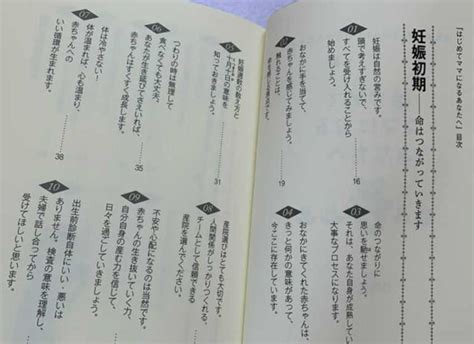 『はじめてママになるあなたへ』目次
妊娠初期――命はつながっていきます
01
妊娠は自然の営みです。
頭で考えすぎないで、
すべてを受け入れることから
始めましょう。
16
02
おなかに手を当てて、
赤ちゃんを感じてみましょう。
触れることは、
19
03
命のつながりに
思いを馳せましょう。
それは、あなた自身が成熟していく
大事なプロセスになります。
04
おなかにきてくれた赤ちゃんは、
きっと何かの意味があって、
今ここに存在しています。
05
妊娠週数の数え方と
十月十日の意味を
知っておきましょう。
31
06
つわりの時は無理して
食べなくても大丈夫。
あなたが生き延びてさえいれば、
赤ちゃんはすくすく成長します。
35
07
体は冷やさない!
体が温まれば、心も温まり、
赤ちゃんへの
いい循環が生まれます。
38
08
産院選びはとても大切です。
人間関係がしっかりつくれる、
チームとして信頼できる
産院を選んでください。
28
09
不安や心配になるのは当然です。
赤ちゃんの生き抜いていく力、
自分自身の産む力を信じて、
日々を過ごしていきましょう。
10
出生前診断自体にいい・悪いは
ありません。検査の意味を理解し、
夫婦で話し合ってから
受けてほしいと思います。